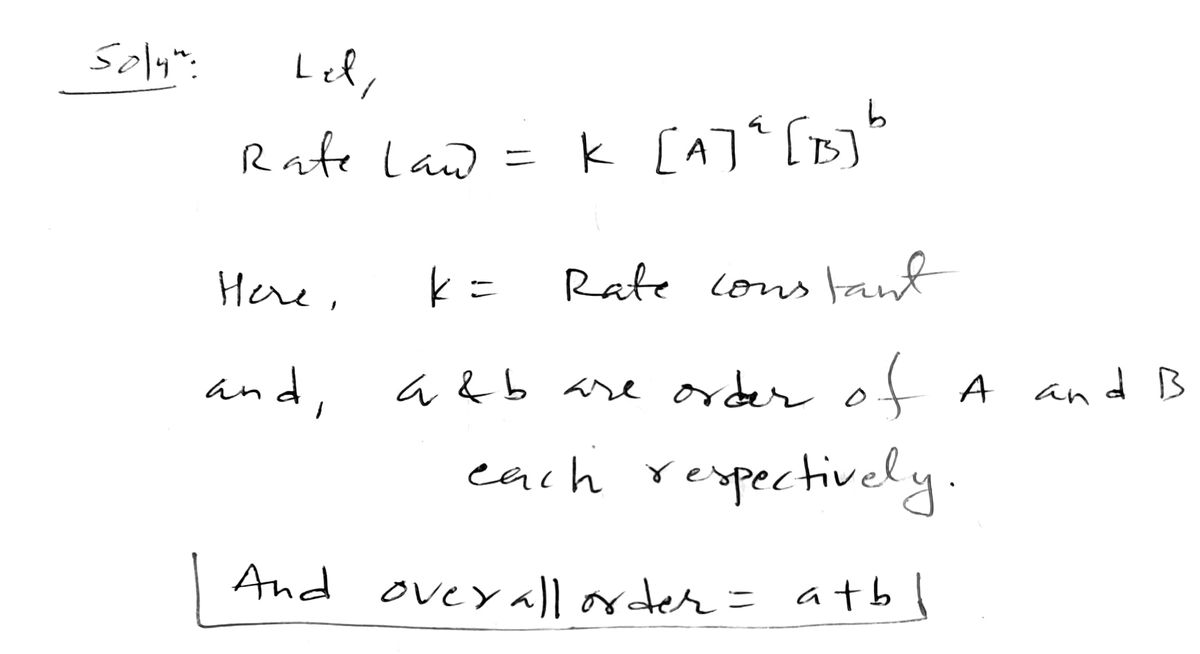 Solyⁿ: Let,
Rate Law = k [A]ᵃ [B]ᵇ
Here, k = Rate constant
and, a & b are order of A and B
each respectively.
And overall order = a+b